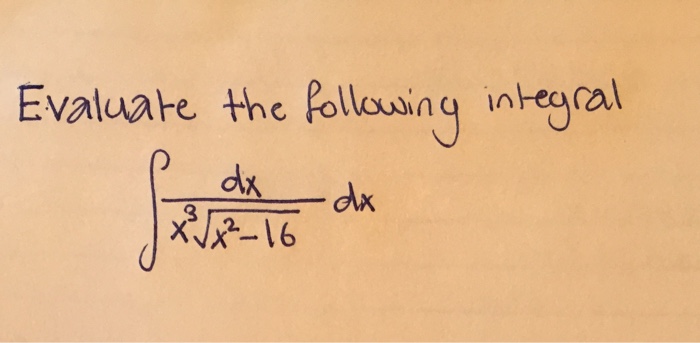 Evaluate the following integral
∫ dx / (x³√(x²-16)) dx